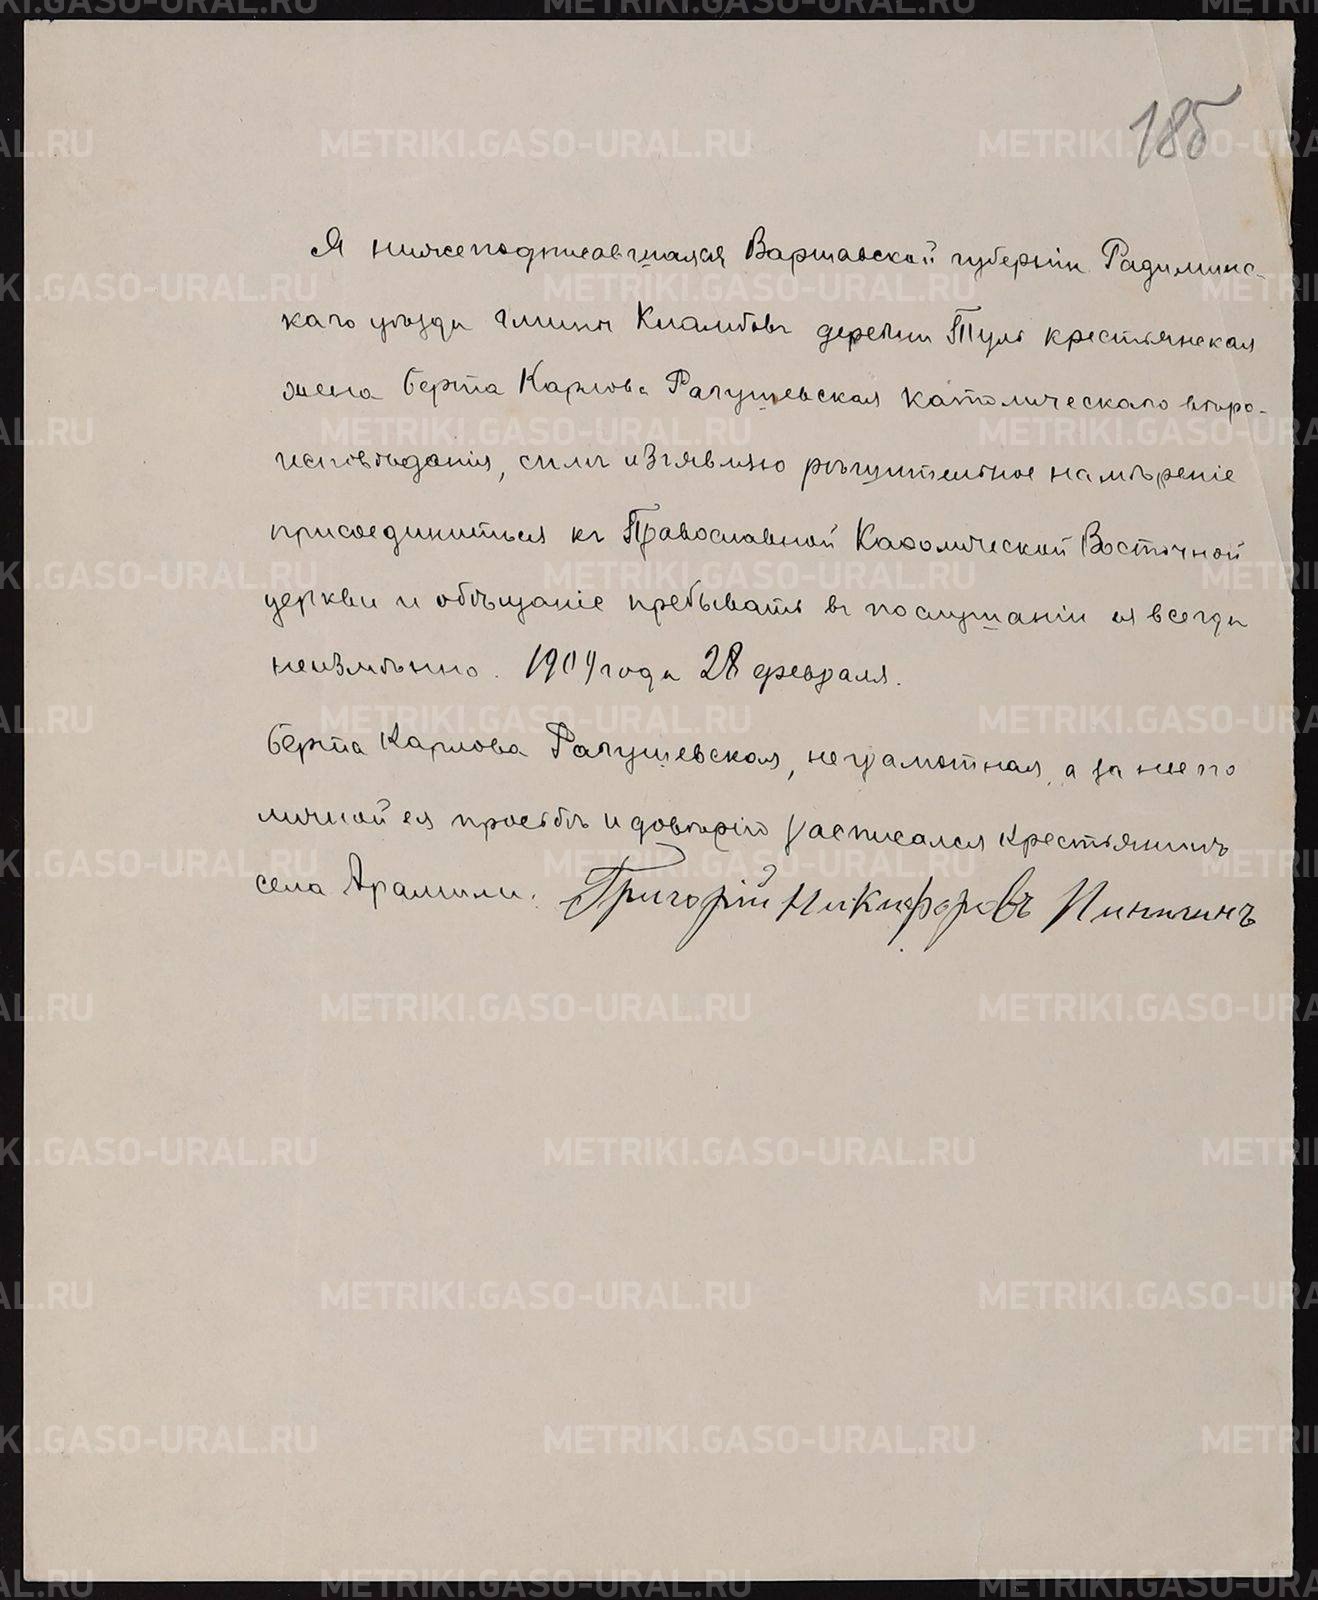 185
Я нижеподписавшаяся Варшавской губерніи Радиминс-
каго уѣзда гмины Климбовъ деревни Тулъ крестьянская
жена Берта Карлова Рагушевская католическаго вѣро-
исповѣданія, симъ изъявляю рѣшительное намѣреніе
присоединиться къ Православной Каѳолической Восточной
церкви и обѣщаніе пребывать въ послушаніи ея всегда
неизмѣнно. 1909 года 28 февраля.
Берта Карлова Рагушевская, неграмотная, а за нее по
личной ея просьбѣ и довѣрію расписался крестьянинъ
села Арамили. Григорій Никифоровъ Пинигинъ